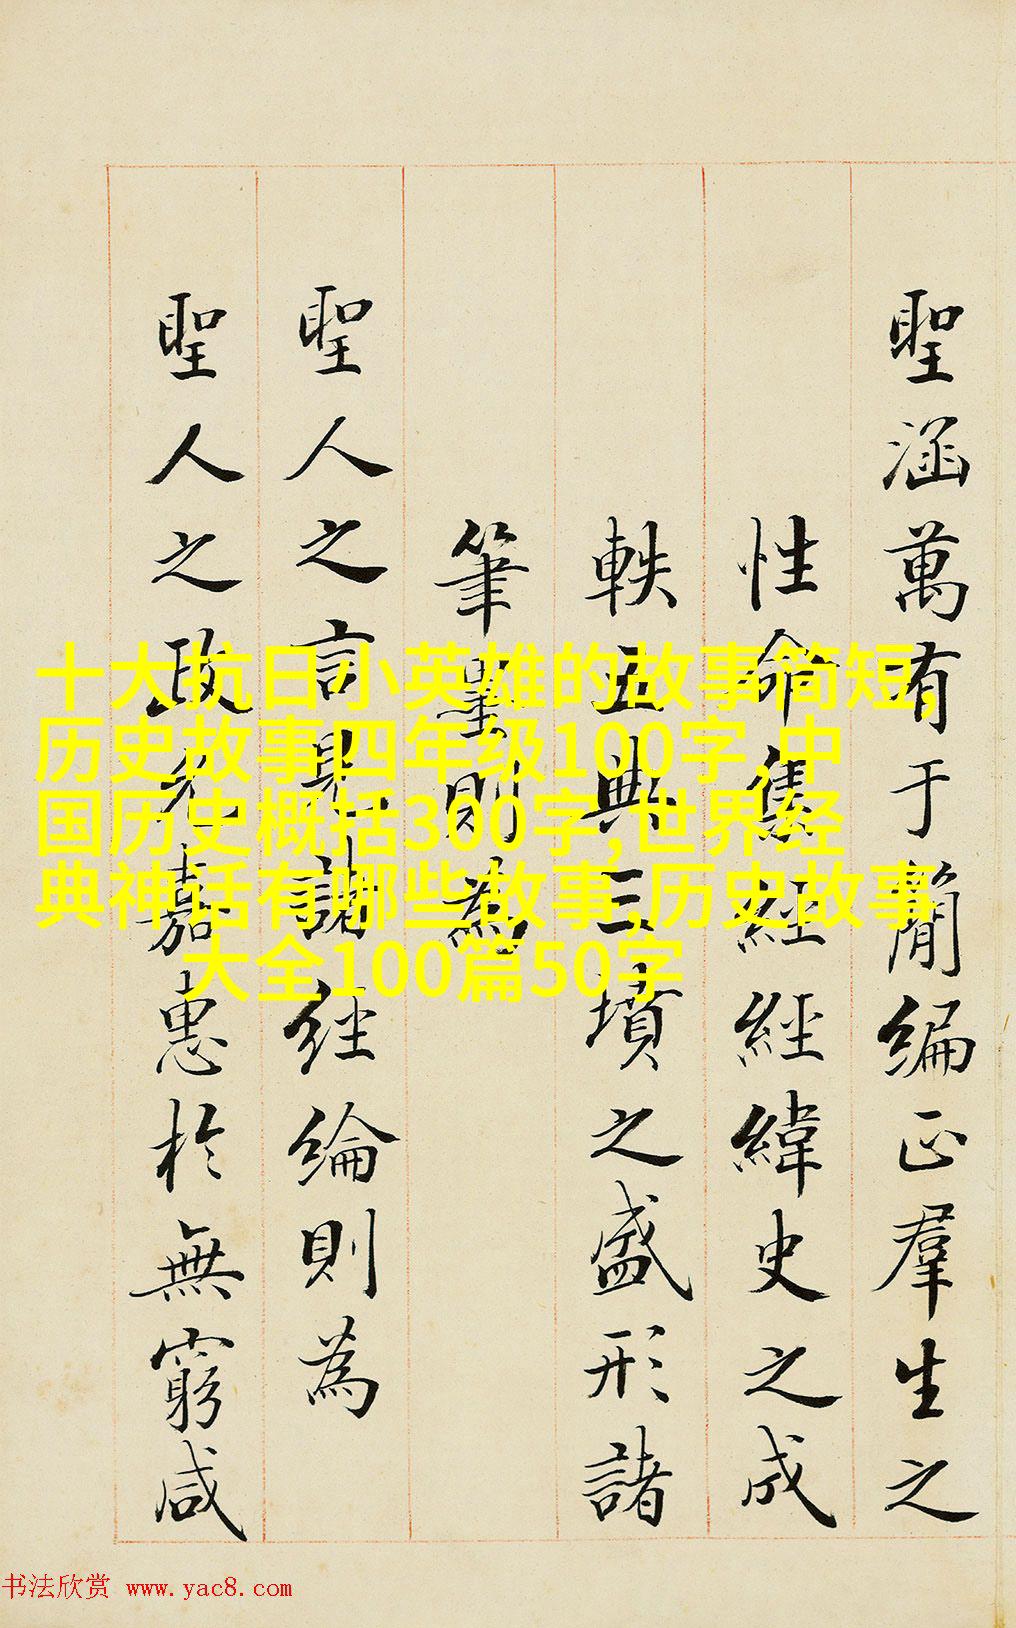 聖涵萬有于簡編正羣生之
性命集經經緯史之成
軼五典三墳之盛形諸
筆墨則為
聖人之言諸經綸則為
聖人之政嘉惠於無窮咸
十大抗日小英雄的故事简短,
历史故事四年级100字,中
国历史概括300字,世界经
典神话有哪些故事,历史故事
大全100篇50字
书法欣赏 www.yac8.com